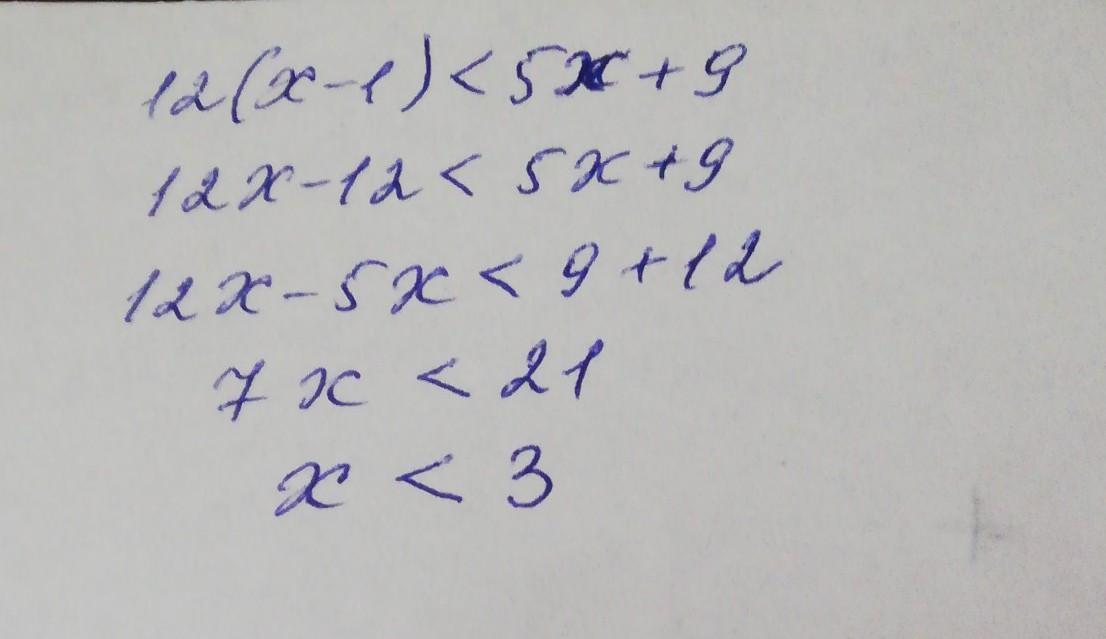 12(x-1)<5x+9
12x-12<5x+9
12x-5x<9+12
7x<21
x<3